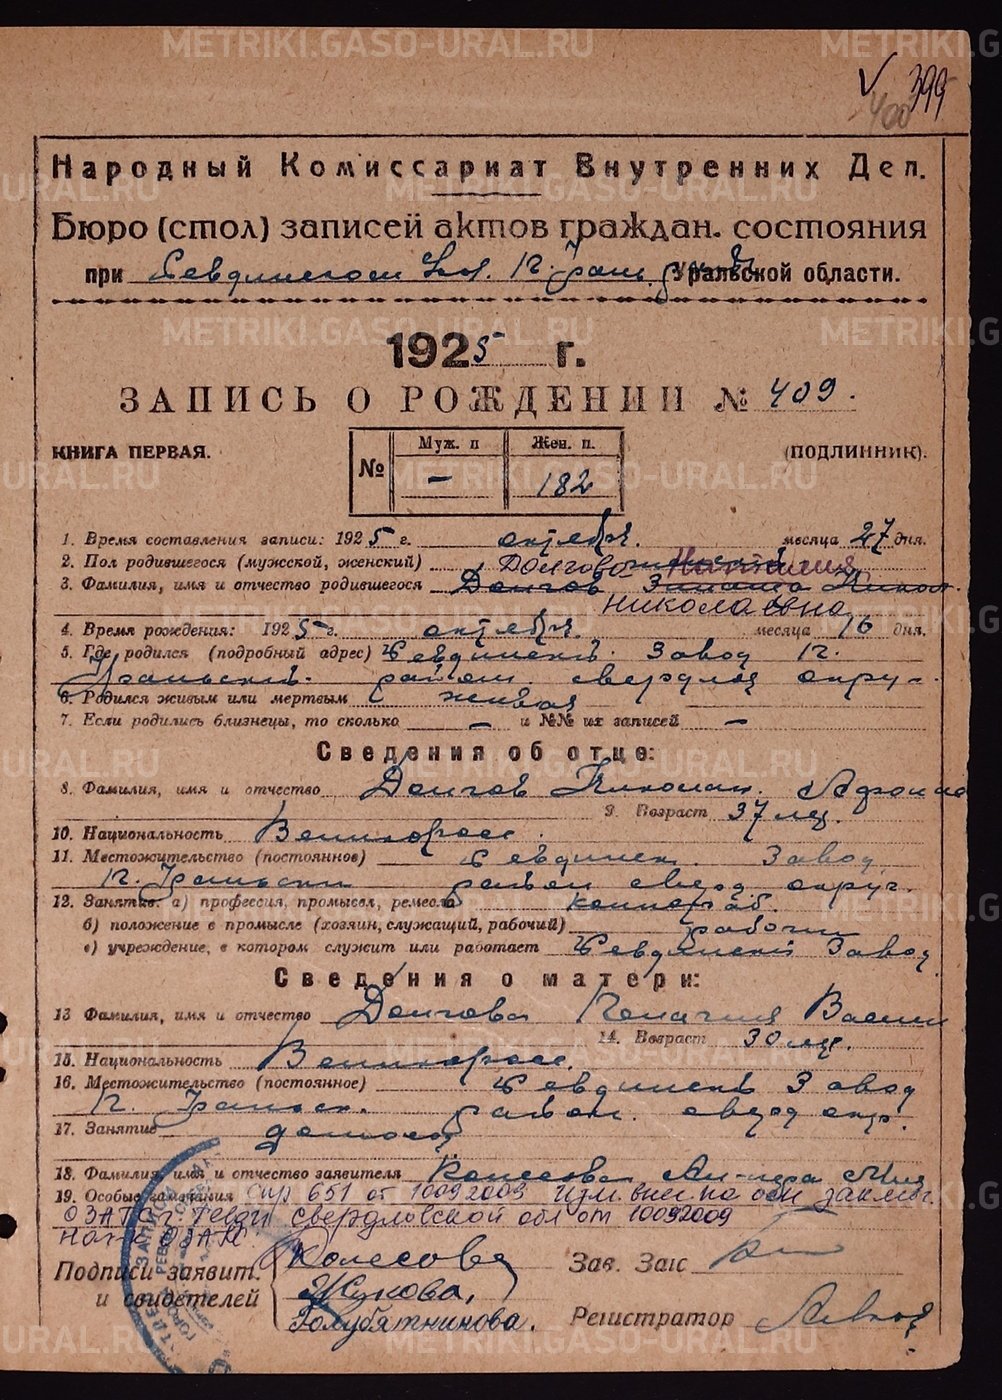 399
400
Народный Комиссариат Внутренних Дел.
Бюро (стол) записей актов граждан. состояния
при Ревдинском Уральской области.
1925 г.
ЗАПИСЬ О РОЖДЕНИИ № 409.
КНИГА ПЕРВАЯ.
(ПОДЛИННИК).
№ Муж. п Жен. п.
— 182
1. Время составления записи: 1925 г. октября. месяца 27 дня.
2. Пол родившегося (мужской, женский) Долгова
3. Фамилия, имя и отчество родившегося Долгов
Николаевна
4. Время рождения: 1925 г. октября месяца 16 дня.
5. Где родился (подробный адрес) Ревдинск. Завод
Уральск. район. свердлов округ.
6. Родился живым или мертвым живая
7. Если родились близнецы, то сколько — и №№ их записей —
Сведения об отце:
8. Фамилия, имя и отчество Долгов Николай
9. Возраст 37 лет.
10. Национальность Великоросс.
11. Местожительство (постоянное) Ревдинск. Завод
район сверд. округ.
12. Занятие. а) профессия, промысел, ремесла
б) положение в промысле (хозяин, служащий, рабочий) рабочий
в) учреждение, в котором служит или работает Ревдинский Завод
Сведения о матери:
13 Фамилия, имя и отчество Долгова Пелагия Васил
14. Возраст 30 лет.
15. Национальность Великоросс.
16. Местожительство (постоянное) Ревдинск Завод
район. сверд окр.
17. Занятие домохоз
18. Фамилия, имя и отчество заявителя Колесова
19. Особые замечания 651 от 10092009 изм. внес. на осн заключ.
ОЗАГС г. Ревды свердловской обл от 10092009
нач-к ОЗАГС
Подписи заявит. и свидетелей
Колесова
Жукова,
Голубятникова.
Зав. Загс
Регистратор
METRIKI.GASO-URAL.RU